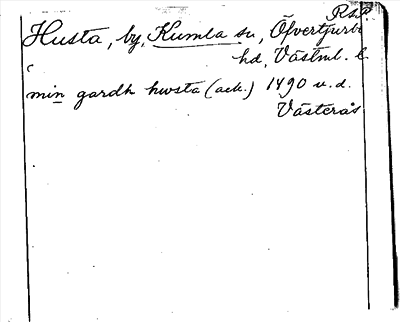 RAP.
Husta, by, Kumla sn, Öfvertjurbo
hd, Västml. l.
c
min gardh hwsta (ack.) 1490 u. d.
Västerås